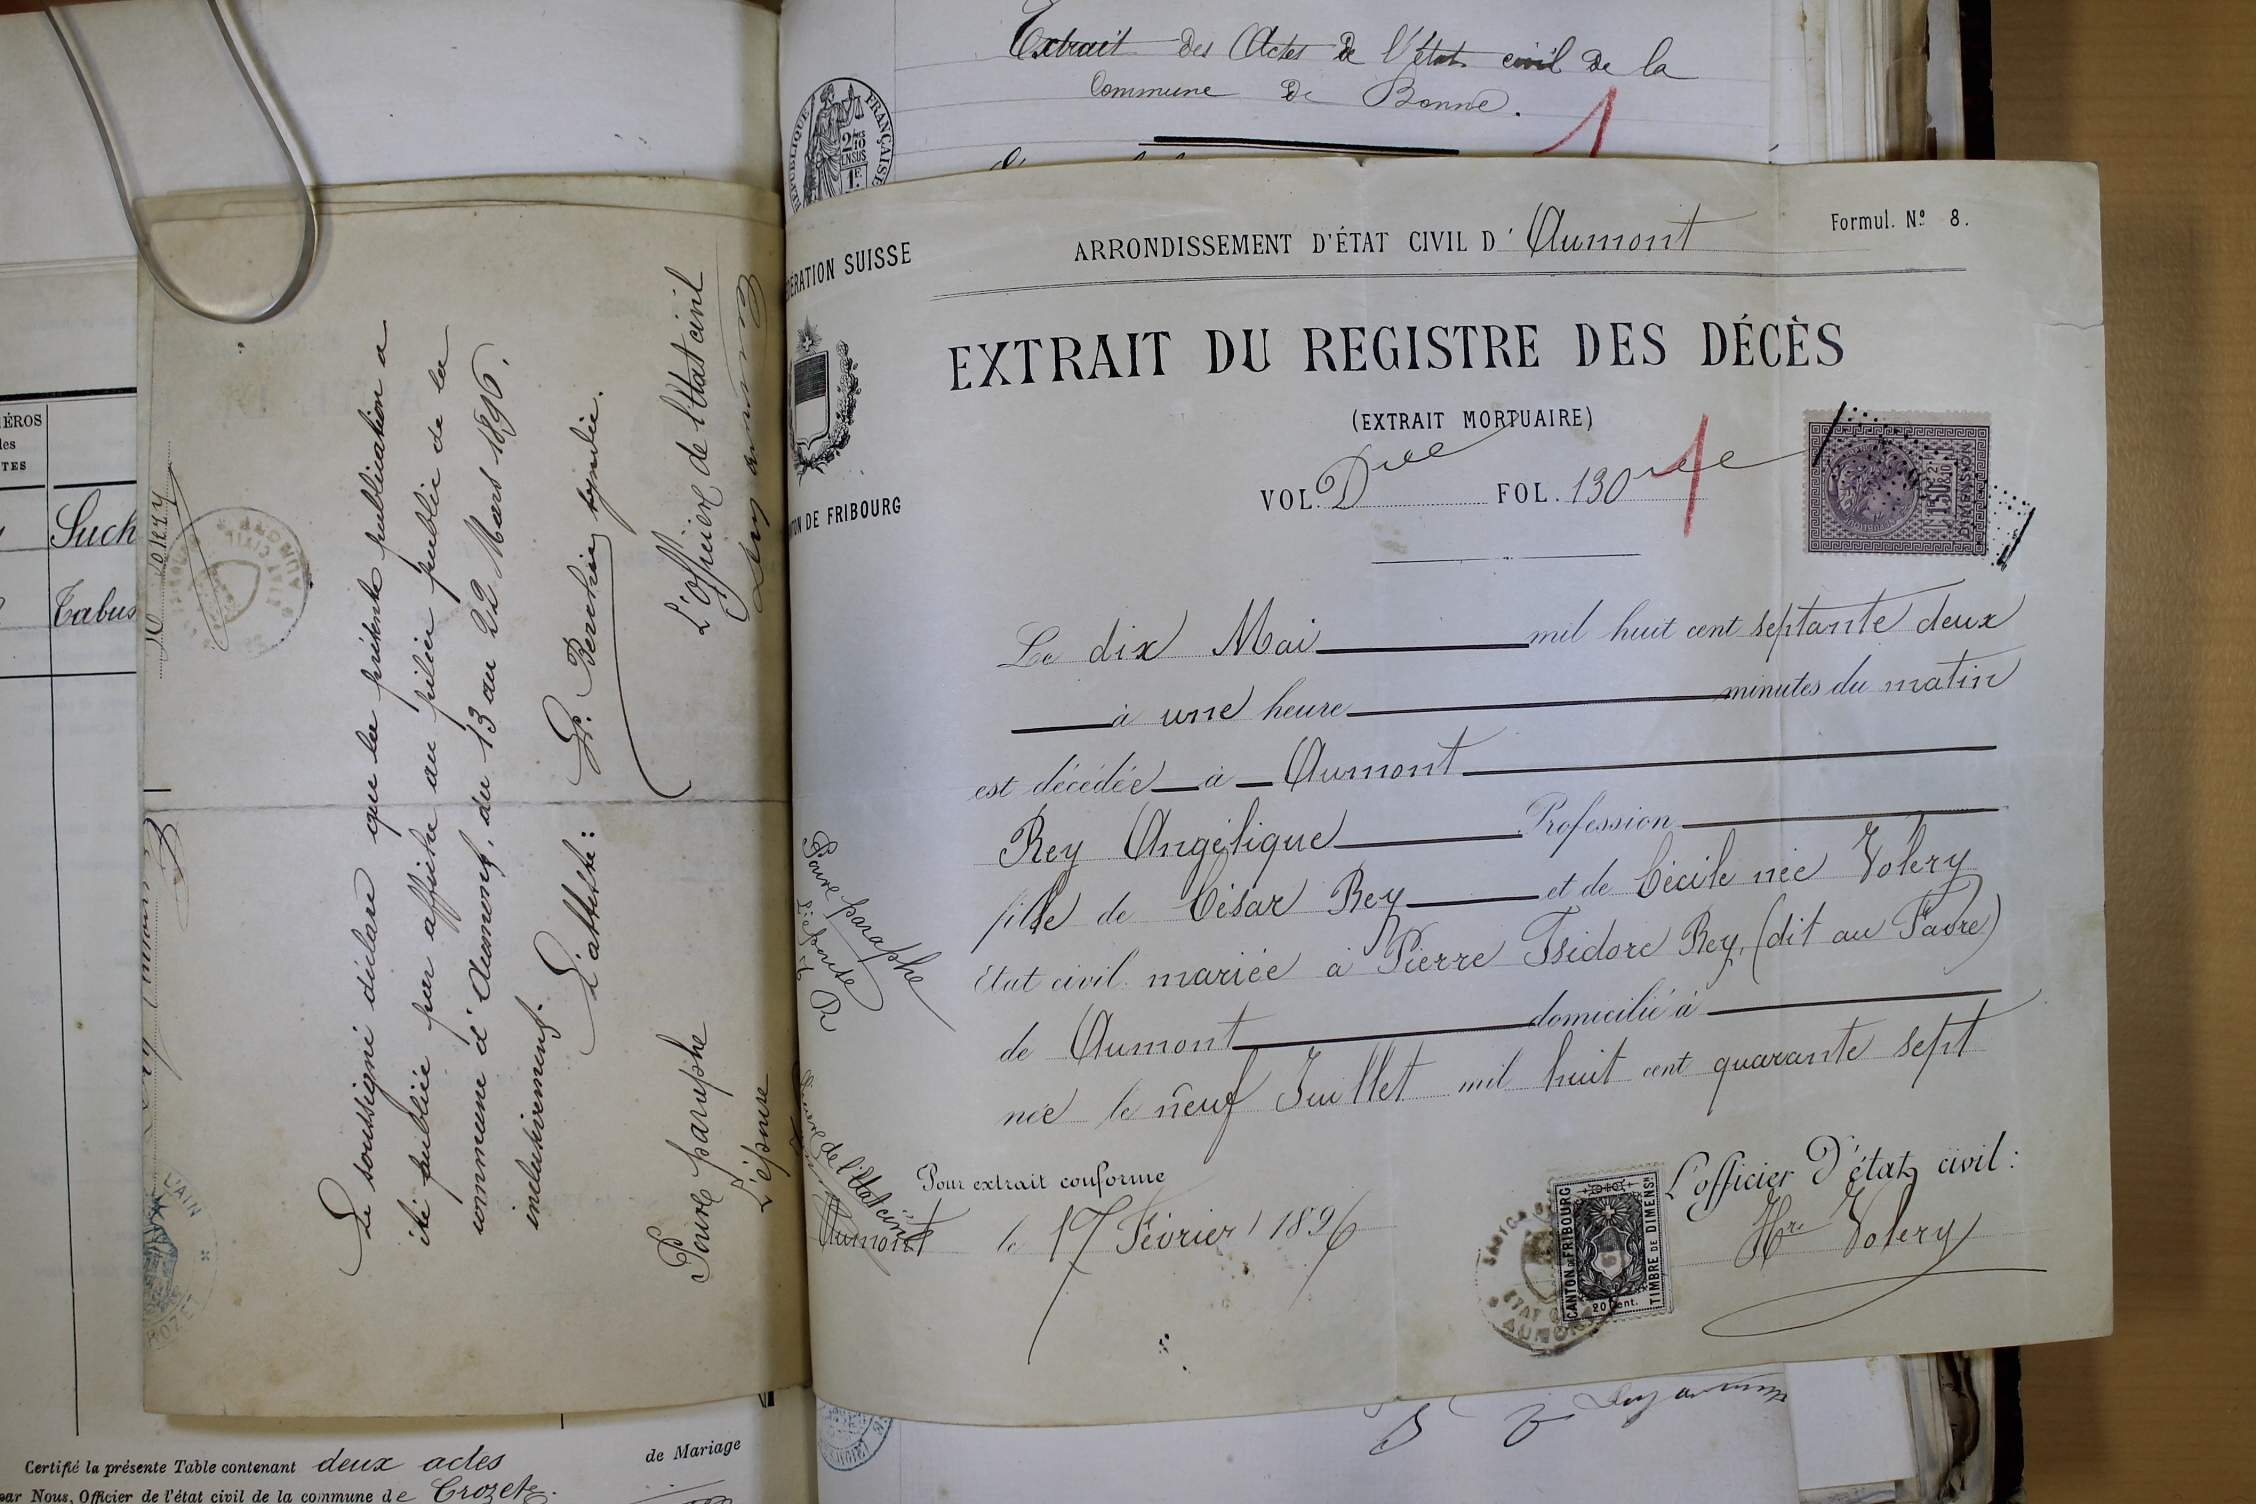 Extrait des Actes de l'état civil de la
Commune de Bonne.
RÉPUBLIQUE FRANÇAISE
2/10
EN SUS
1F.
ÉROS
les
TES
Such
Tabus
Volery
AUMONT
Le soussigné déclare que la présente publication a
été publiée par affiche au pilier public de la
commune d'Aumont, du 13 au 22 Mars 1896.
inclusivement.
L'atteste:
syndic.
Pour paraphe
L'épouse
L'Officier de l'Etat civil
L'AIN
OZET
ÉRATION SUISSE
ARRONDISSEMENT D'ÉTAT CIVIL D'Aumont
Formul. Nº 8.
EXTRAIT DU REGISTRE DES DÉCÈS
(EXTRAIT MORTUAIRE)
TON DE FRIBOURG
VOL. D FOL. 130
1
1
DIMENSION
Le dix Mai mil huit cent septante deux
à une heure minutes du matin
est décédée à Aumont
Rey Angélique Profession
fille de César Rey et de Cécile née Volery
Etat civil mariée à Pierre Isidore Rey, (dit au Favre)
de Aumont domicilié à
née le neuf Juillet mil huit cent quarante sept
Pour paraphe
L'épouse
de l'Etat civil
Pour extrait conforme
Aumont le 17 Février 1896
L'officier d'état civil:
Hre Volery
CANTON DE FRIBOURG
TIMBRE DE DIMENSN
20 Cent.
ETAT
AUMONT
Certifié la présente Table contenant deux actes de Mariage
par Nous, Officier de l'état civil de la commune de Crozet